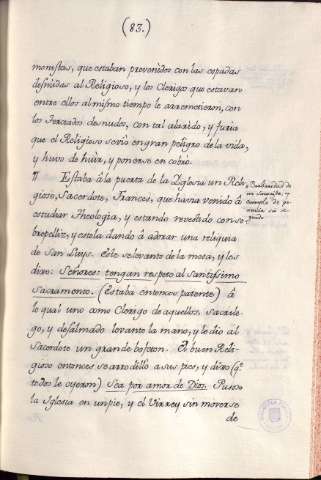 (83.)
monistas, que estaban prevenidos con las espadas
desnudas al Religioso, y los Clerigos que estavan
entre ellos al mismo tiempo le arremetieron, con
los Terciados desnudos, con tal alarido, y furia
que el Religioso se vió en gran peligro de la vida,
y huvo de huir, y ponerse en cobro.
¶ Estaba á la puerta de la Iglesia un Reli-
gioso, Sacerdote, Frances, que havia venido á
estudiar Theologia, y estando revestido con so-
brepelliz, y estola dando á adorar una reliquia
de San Luys. Este se levanto de la mesa, y les
dixo: Señores: tengan respeto al Santissimo
Sacramento. (Estaba entonces patente) â
lo qual uno como Clerigo de aquellos, sacrile-
go, y desalmado levanto la mano, y le dio al
Sacerdote un grande bofeton. El buen Reli-
gioso entonces se arrodilló a sus pies, y dixo (q.
todos le oyeron) Sea por amor de Dios. Pusose
la Iglesia en un pie, y el Virrey sin moverse
de
de
un Sacerdote, y